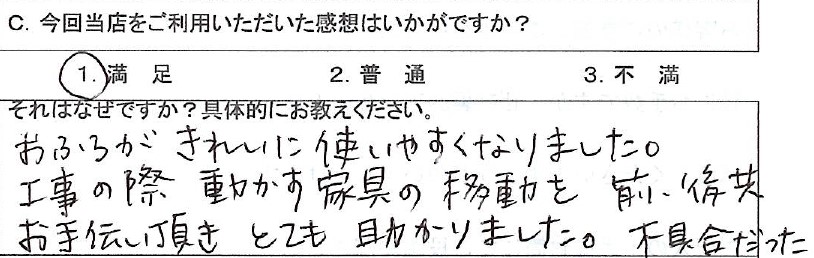 C. 今回当店をご利用いただいた感想はいかがですか？
1. 満 足 2. 普 通 3. 不 満
それはなぜですか？具体的にお教えください。
おふろが きれいに 使いやすくなりました。
工事の際 動かす家具の移動を 前、後共
お手伝い頂き とても 助かりました。 不具合だった